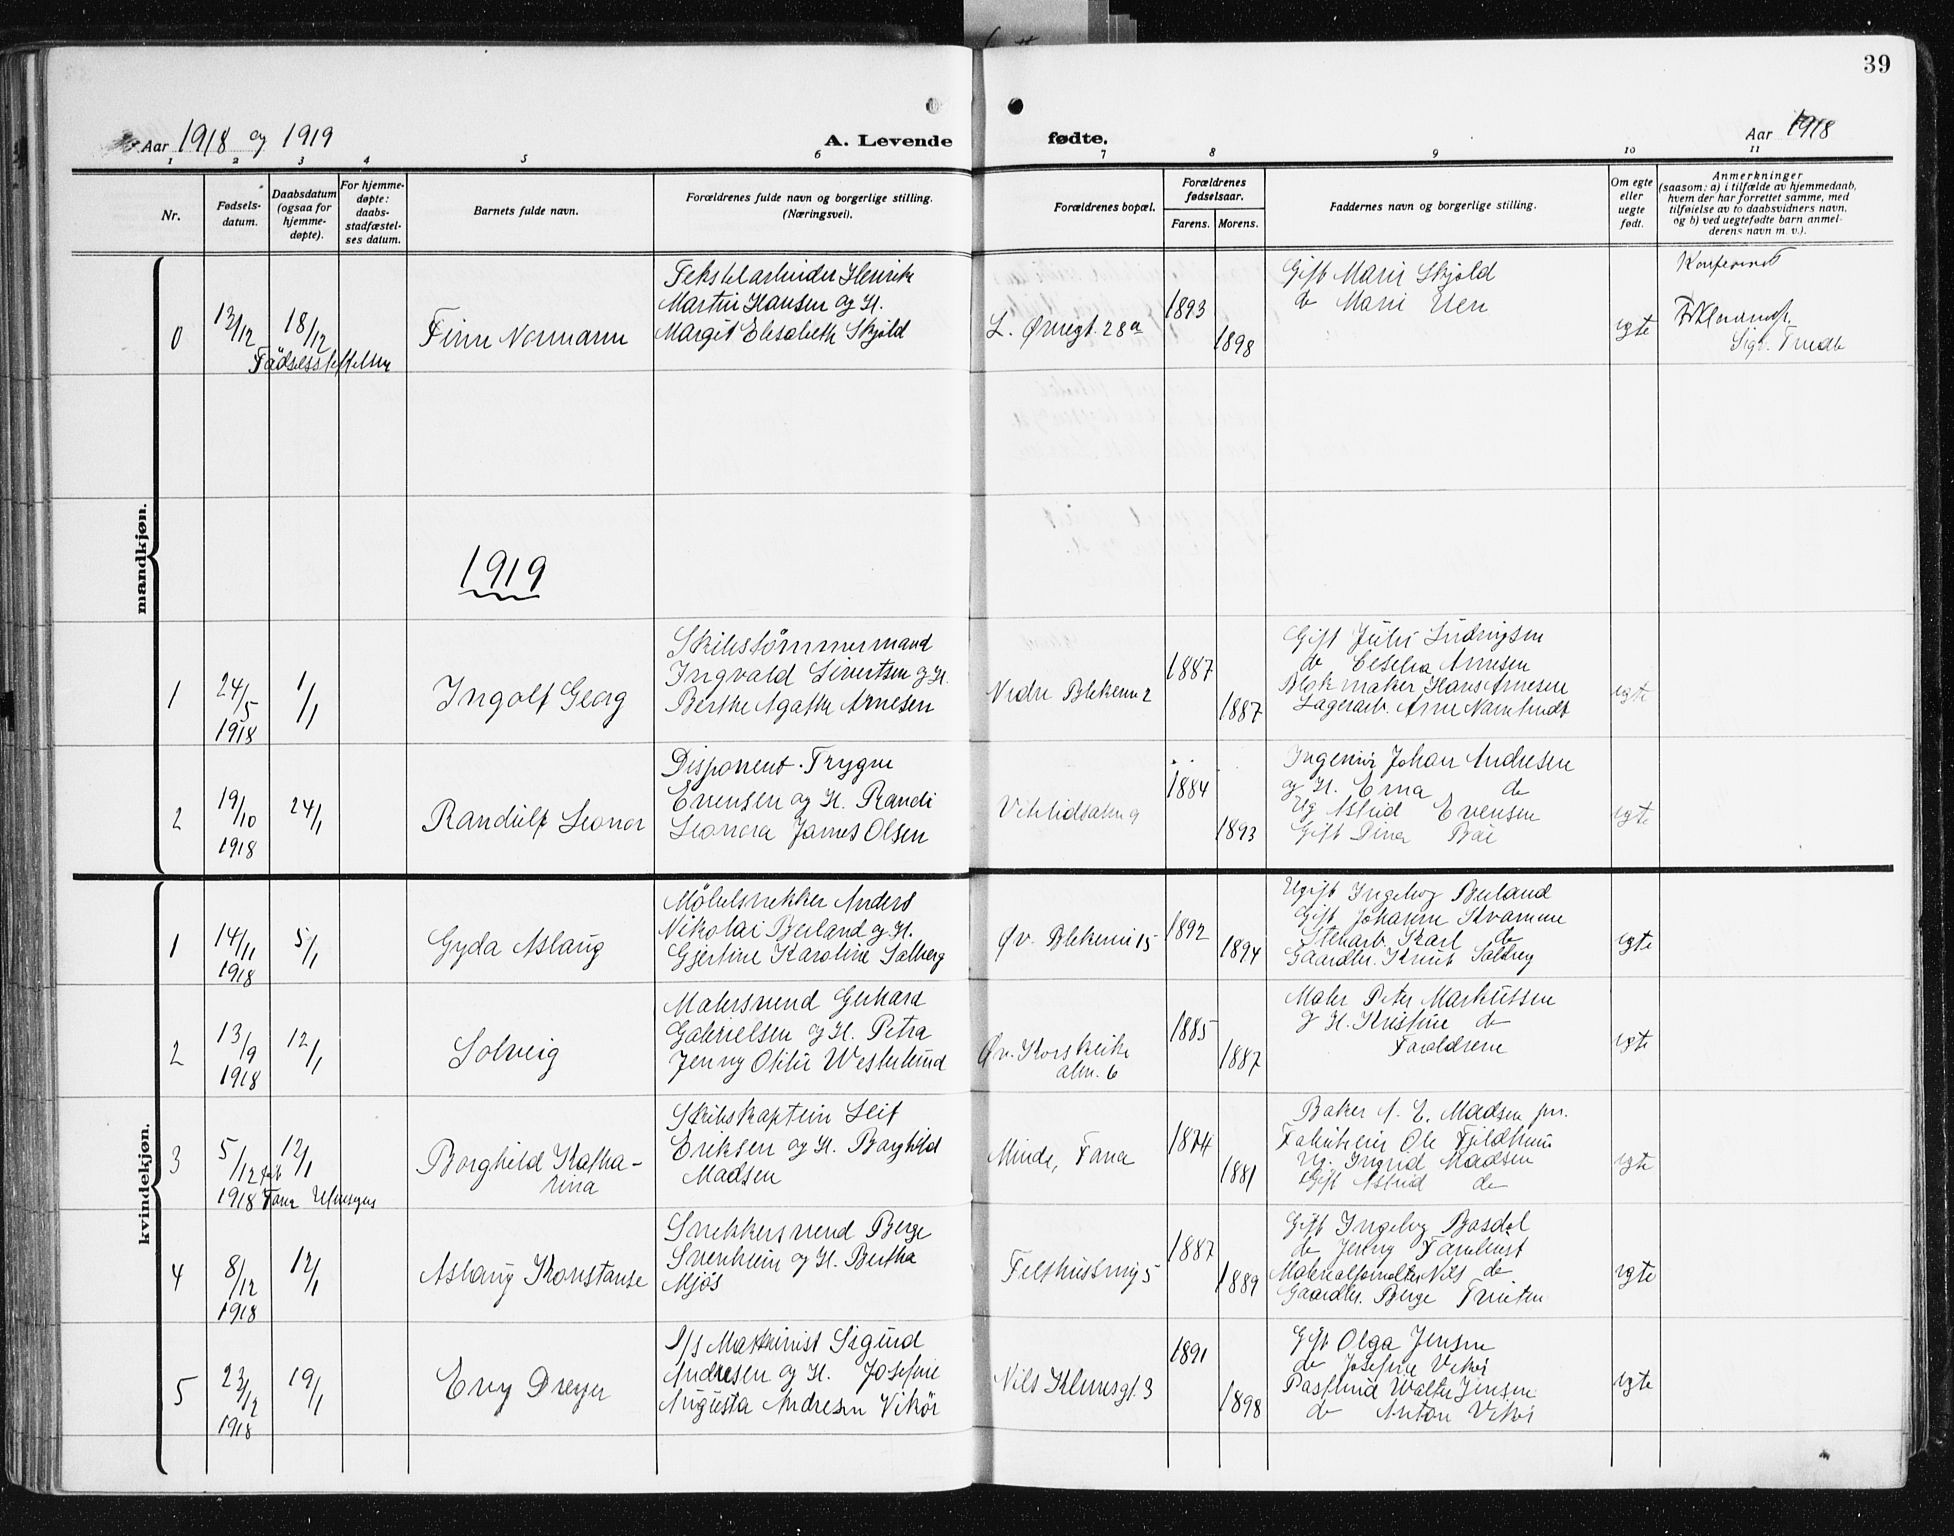 39
Aar 1918 og 1919
A. Levende fødte.
Aar 1918
1 2 3 4 5 6 7 8 9 10 11
Nr.
Fødsels-
datum.
Daabsdatum
(ogsaa for
hjemme-
døpte).
For hjemme-
døpte:
daabs-
stadfæstel-
ses datum.
Barnets fulde navn.
Forældrenes fulde navn og borgerlige stilling.
(Næringsvei).
Forældrenes bopæl.
Forældrenes
fødselsaar.
Farens. Morens.
Faddernes navn og borgerlige stilling.
Om egte
eller
uegte
født.
Anmerkninger
(saasom: a) i tilfælde av hjemmedaab,
hvem der har forrettet samme, med
tilføielse av to daabsvidners navn,
og b) ved uegtefødte barn anmel-
derens navn m. v.).
mandkjøn.
0
13/12
18/12
Fødselsstiftelsen
Finn Normann
Tekstilarbeider Henrik
Martin Hansen og H.
Margit Elisabeth Skjold
L. Øvregt. 28a
1893
1898
Gift Marie Skjold
do Marie
egte
Konfereret
1919
1
24/5
1918
1/1
Ingolf Georg
Skibstømmermand
Ingvald Sivertsen og H.
Berthe Agathe Arnesen
Nedre Blekevei 2
1887
1887
Gift Julie Ludvigsen
do Cecelia Arnesen
Blokmaker Hans Arnesen
Lagerarb. Arne
egte
2
19/10
1918
24/1
Randulf Leonor
Disponent Trygve
Evensen og H. Randi
Leonora James Olsen
9
1884
1893
Ingeniør Johan Andresen
og H. Erna do
Ug Astrid Evensen
Gift Dina
egte
kvindekjøn.
1
14/11
1918
5/1
Gyda Aslaug
Møbelsnekker Anders
Nikolai Berland og H.
Gjertine Karoline Solberg
Øv. Blekevei 15
1892
1894
Ugift Ingeborg Berland
Gift Johanne Kvamme
Stenarb. Karl do
Gaardbr. Knut Solberg
egte
2
13/9
1918
12/1
Solveig
Malersvend Gerhard
Gabrielsen og H. Petra
Jenny Otilie Westerlund
Øv. Korskirke
alm. 6
1885
1887
Maler Peter Markussen
og H. Kristine do
Forældrene
egte
3
5/12 født
1918 Fana
12/1
Borghild Katha-
rina
Skibskaptein Leif
Eriksen og H. Borghild
Madsen
Minde, Fana
1874
1881
Baker A. E. Madsen jun.
Ole
Ug. Ingrid Madsen
Gift Astrid do
egte
4
8/12
1918
12/1
Aslaug Konstanse
Snekkersvend Berge
Svenheim og H. Bertha
Mjøs
5
1887
1889
Gift Ingeborg
do Jenny
Nils do
Gaardbr. Berge
egte
5
23/12
1918
19/1
Evy Dreyer
S/s Maskinist Sigurd
Andresen og H. Josefine
Augusta Andresen Vikør
Nils Klimsgt. 3
1891
1898
Gift Olga Jensen
do Josefine Vikør
Postbud Walter Jensen
do Anton Vikør
egte